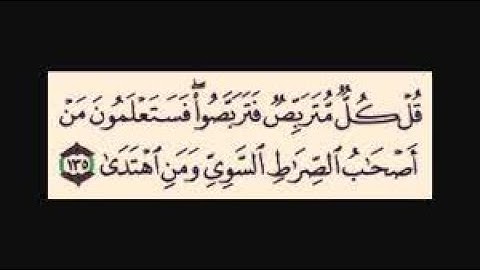 قُلۡ كُلّٞ مُّتَرَبِّصٞ فَتَرَبَّصُواْۖ فَسَتَعۡلَمُونَ مَنۡ
أَصۡحَٰبُ ٱلصِّرَٰطِ ٱلسَّوِيِّ وَمَنِ ٱهۡتَدَىٰ ١٣٥